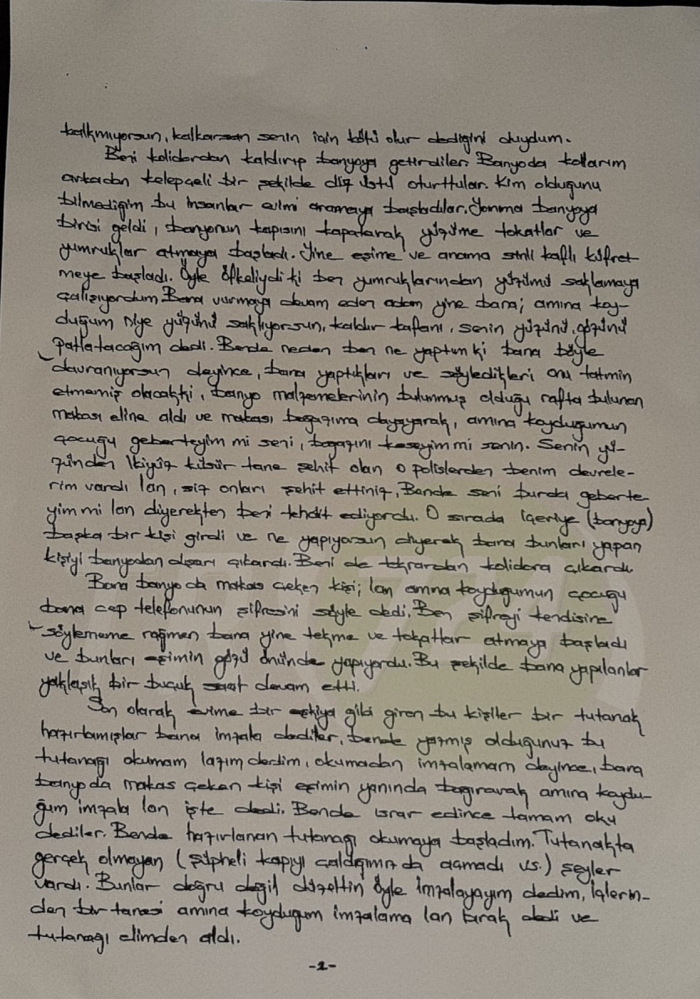 kalkmıyorsun, kalkarsan senin için kötü olur dediğini duydum.
Beni kolidordan kaldırıp banyoya getirdiler. Banyoda kollarım
arkadan kelepçeli bir şekilde diz üstü oturttular. Kim olduğunu
bilmediğim bu insanlar evimi aramaya başladılar. Yanıma banyoya
birisi geldi, banyonun kapısını kapatarak yüzüme tokatlar ve
yumruklar atmaya başladı. Yine eşime ve anama sinli kaflı küfret
meye başladı. Öyle öfkeliydi ki ben yumruklarından yüzümü saklamaya
çalışıyordum. Bana vurmaya devam eden adam yine bana; amına koy-
duğum niye yüzünü saklıyorsun, kaldır kafanı, senin yüzünü, gözünü
patlatacağım dedi. Bende neden ben ne yaptım ki bana böyle
davranıyorsun deyince, bana yaptıkları ve söyledikleri onu tatmin
etmemiş olacakki, banyo malzemelerinin bulunmuş olduğu rafta bulunan
makası eline aldı ve makası boğazıma dayayarak, amına koyduğumun
çocuğu geberteyim mi seni, boğazını keseyim mi senin. Senin yü-
zünden ikiyüz küsür tane şehit olan o polislerden benim devrele-
rim vardı lan, siz onları şehit ettiniz, Bende seni burda geberte
yim mi lan diyerekten beni tehdit ediyordu. O sırada içeriye (banyoya)
başka bir kişi girdi ve ne yapıyorsun diyerek bana bunları yapan
kişiyi banyodan dışarı çıkardı. Beni de tekrardan kolidora çıkardı
Bana banyoda makas çeken kişi; lan amına koyduğumun çocuğu
bana cep telefonunun şifresini söyle dedi. Ben şifreyi kendisine
söylememe rağmen bana yine tekme ve tokatlar atmaya başladı
ve bunları eşimin gözü önünde yapıyordu. Bu şekilde bana yapılanlar
yaklaşık bir buçuk saat devam etti.
Son olarak evime bir eşkiya gibi giren bu kişiler bir tutanak
hazırlamışlar bana imzala dediler, bende yazmış olduğunuz bu
tutanağı okumam lazım dedim, okumadan imzalamam deyince, bana
banyoda makas çeken kişi eşimin yanında bağırarak amına koydu-
ğum imzala lan işte dedi. Bende ısrar edince tamam oku
dediler. Bende hazırlanan tutanağı okumaya başladım. Tutanakta
gerçek olmayan (şüpheli kapıyı çaldığımızda açmadı vs.) şeyler
vardı. Bunlar doğru değil düzeltin öyle imzalayayım dedim, içlerin-
den bir tanesi amına koyduğum imzalama lan bırak dedi ve
tutanağı elimden aldı.
-2-